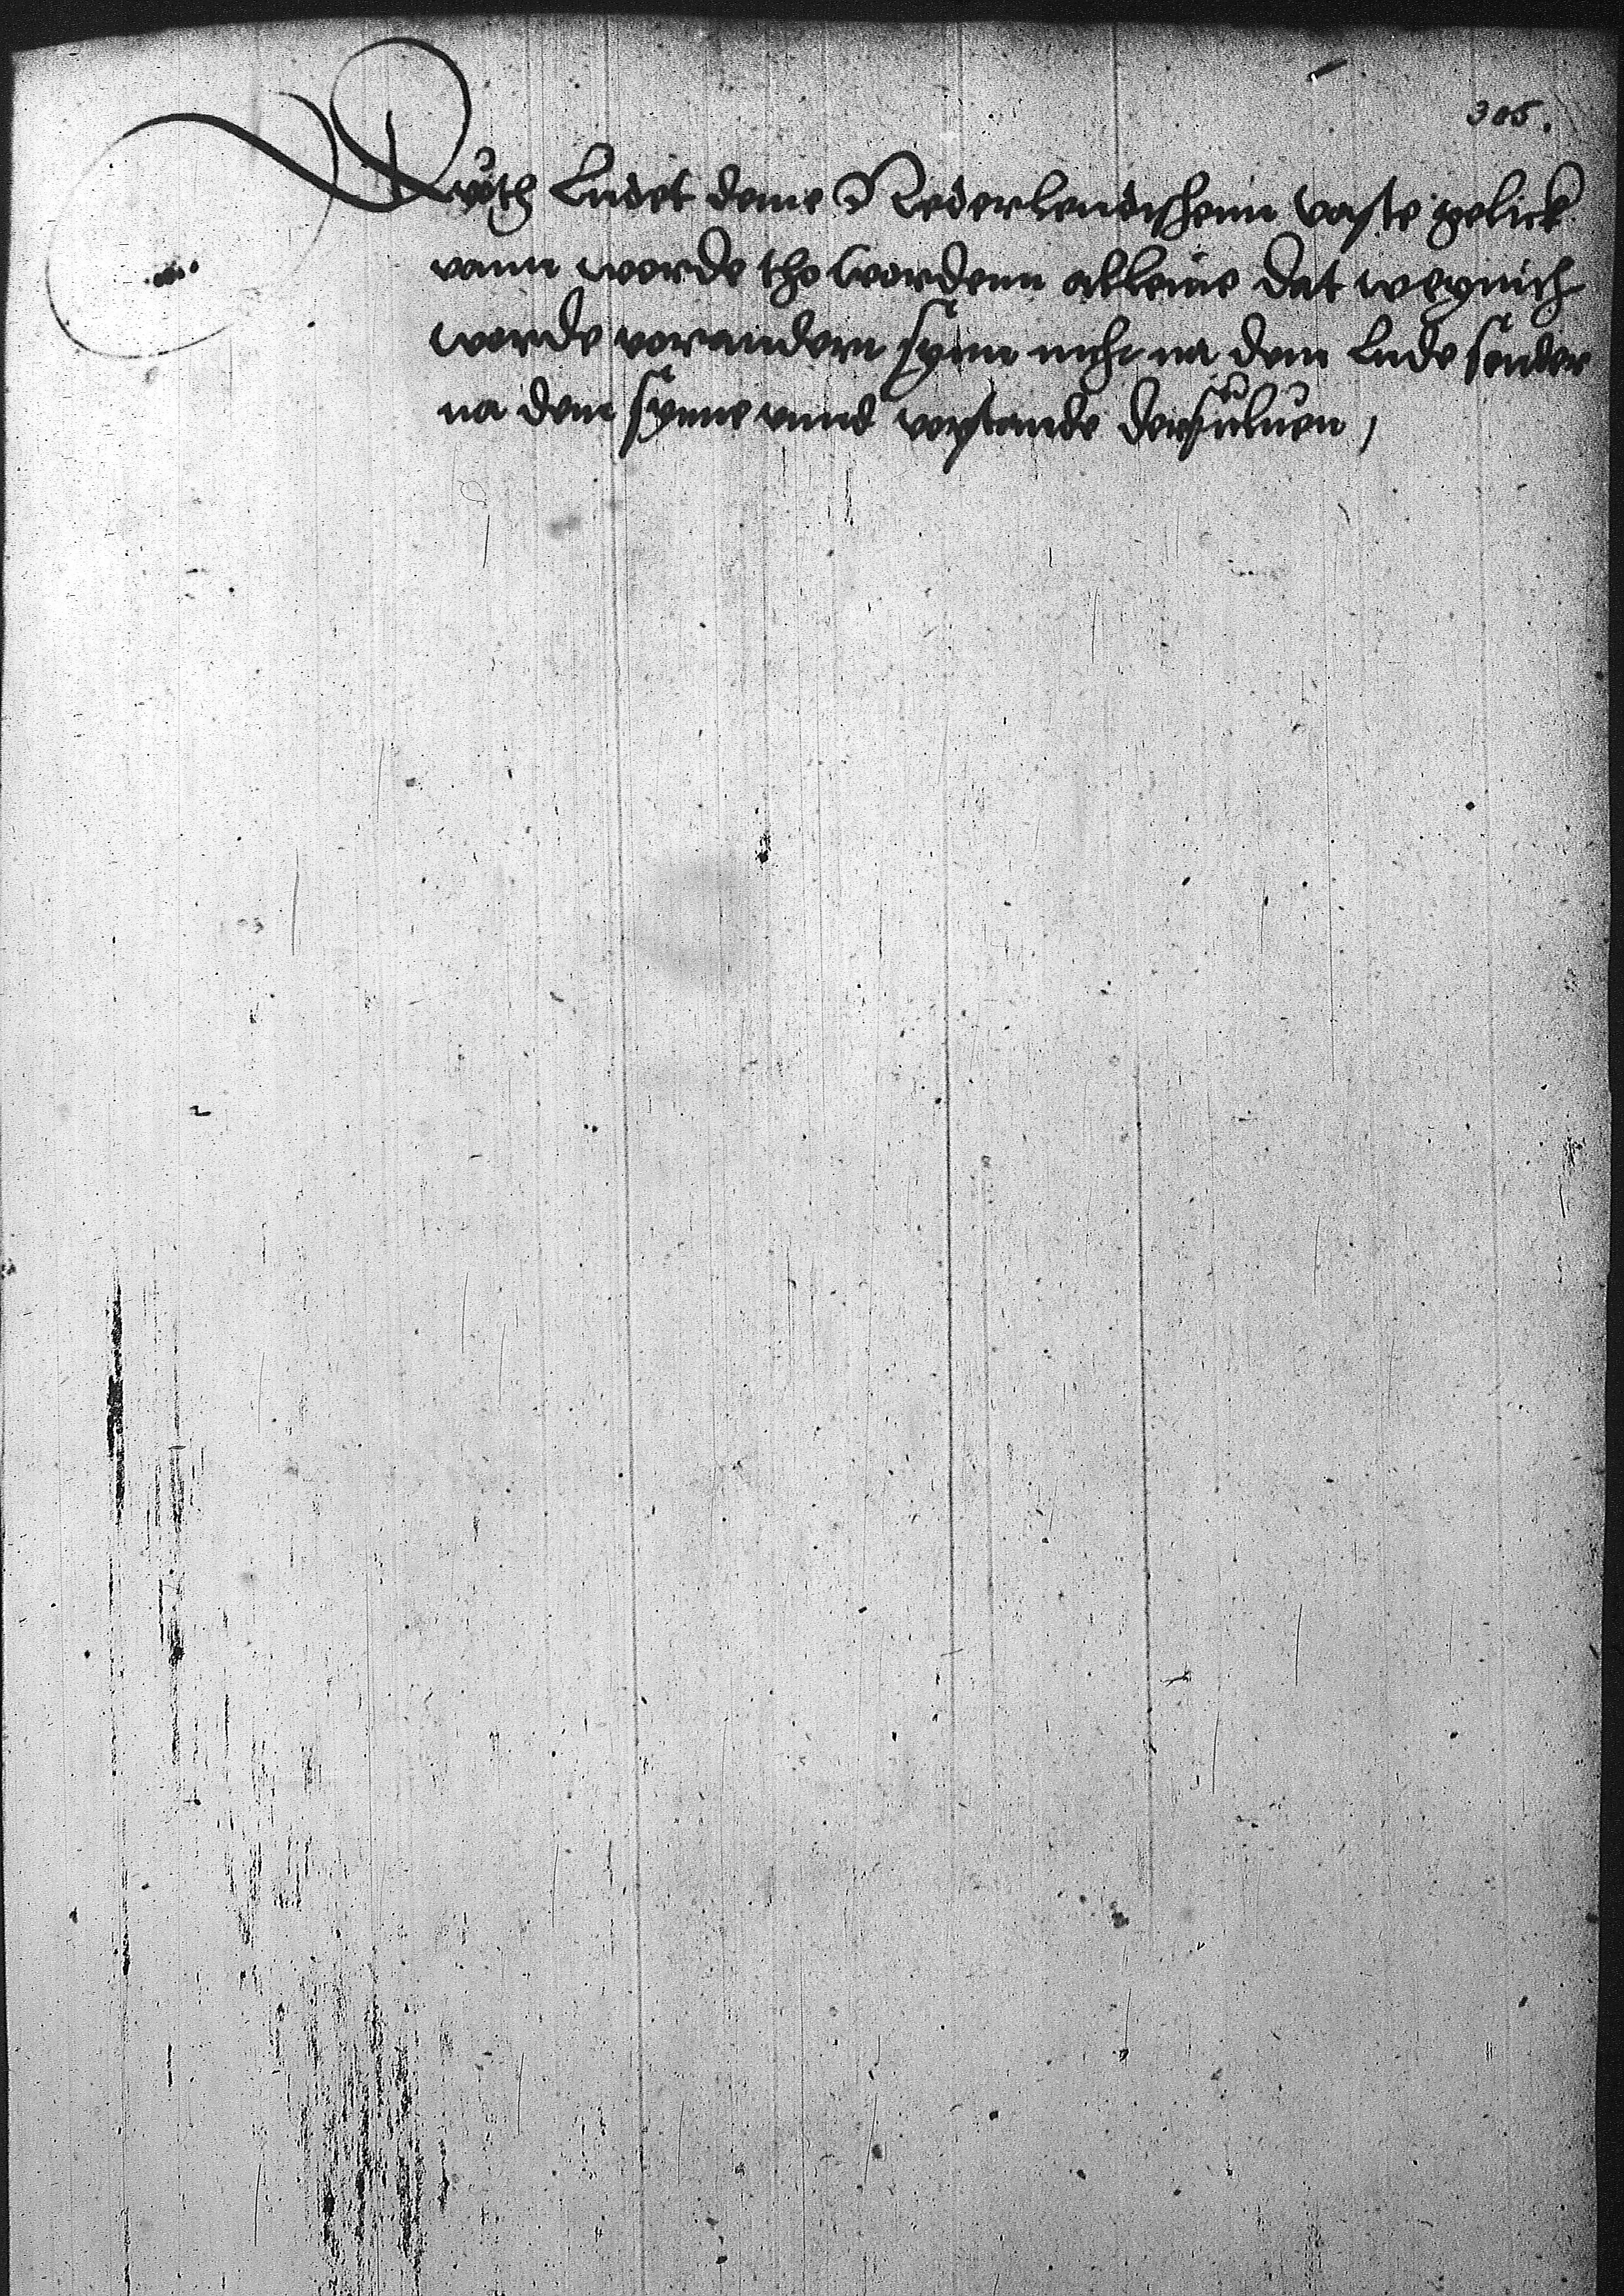 305.
Duth Ludet deme Nederlendischenn vaste gelick
vann worde tho wordenn alleine dat weynich
worde vorandern synn nicht na dem Lude sunder
na dem synne unnd vorstande dersuluen,